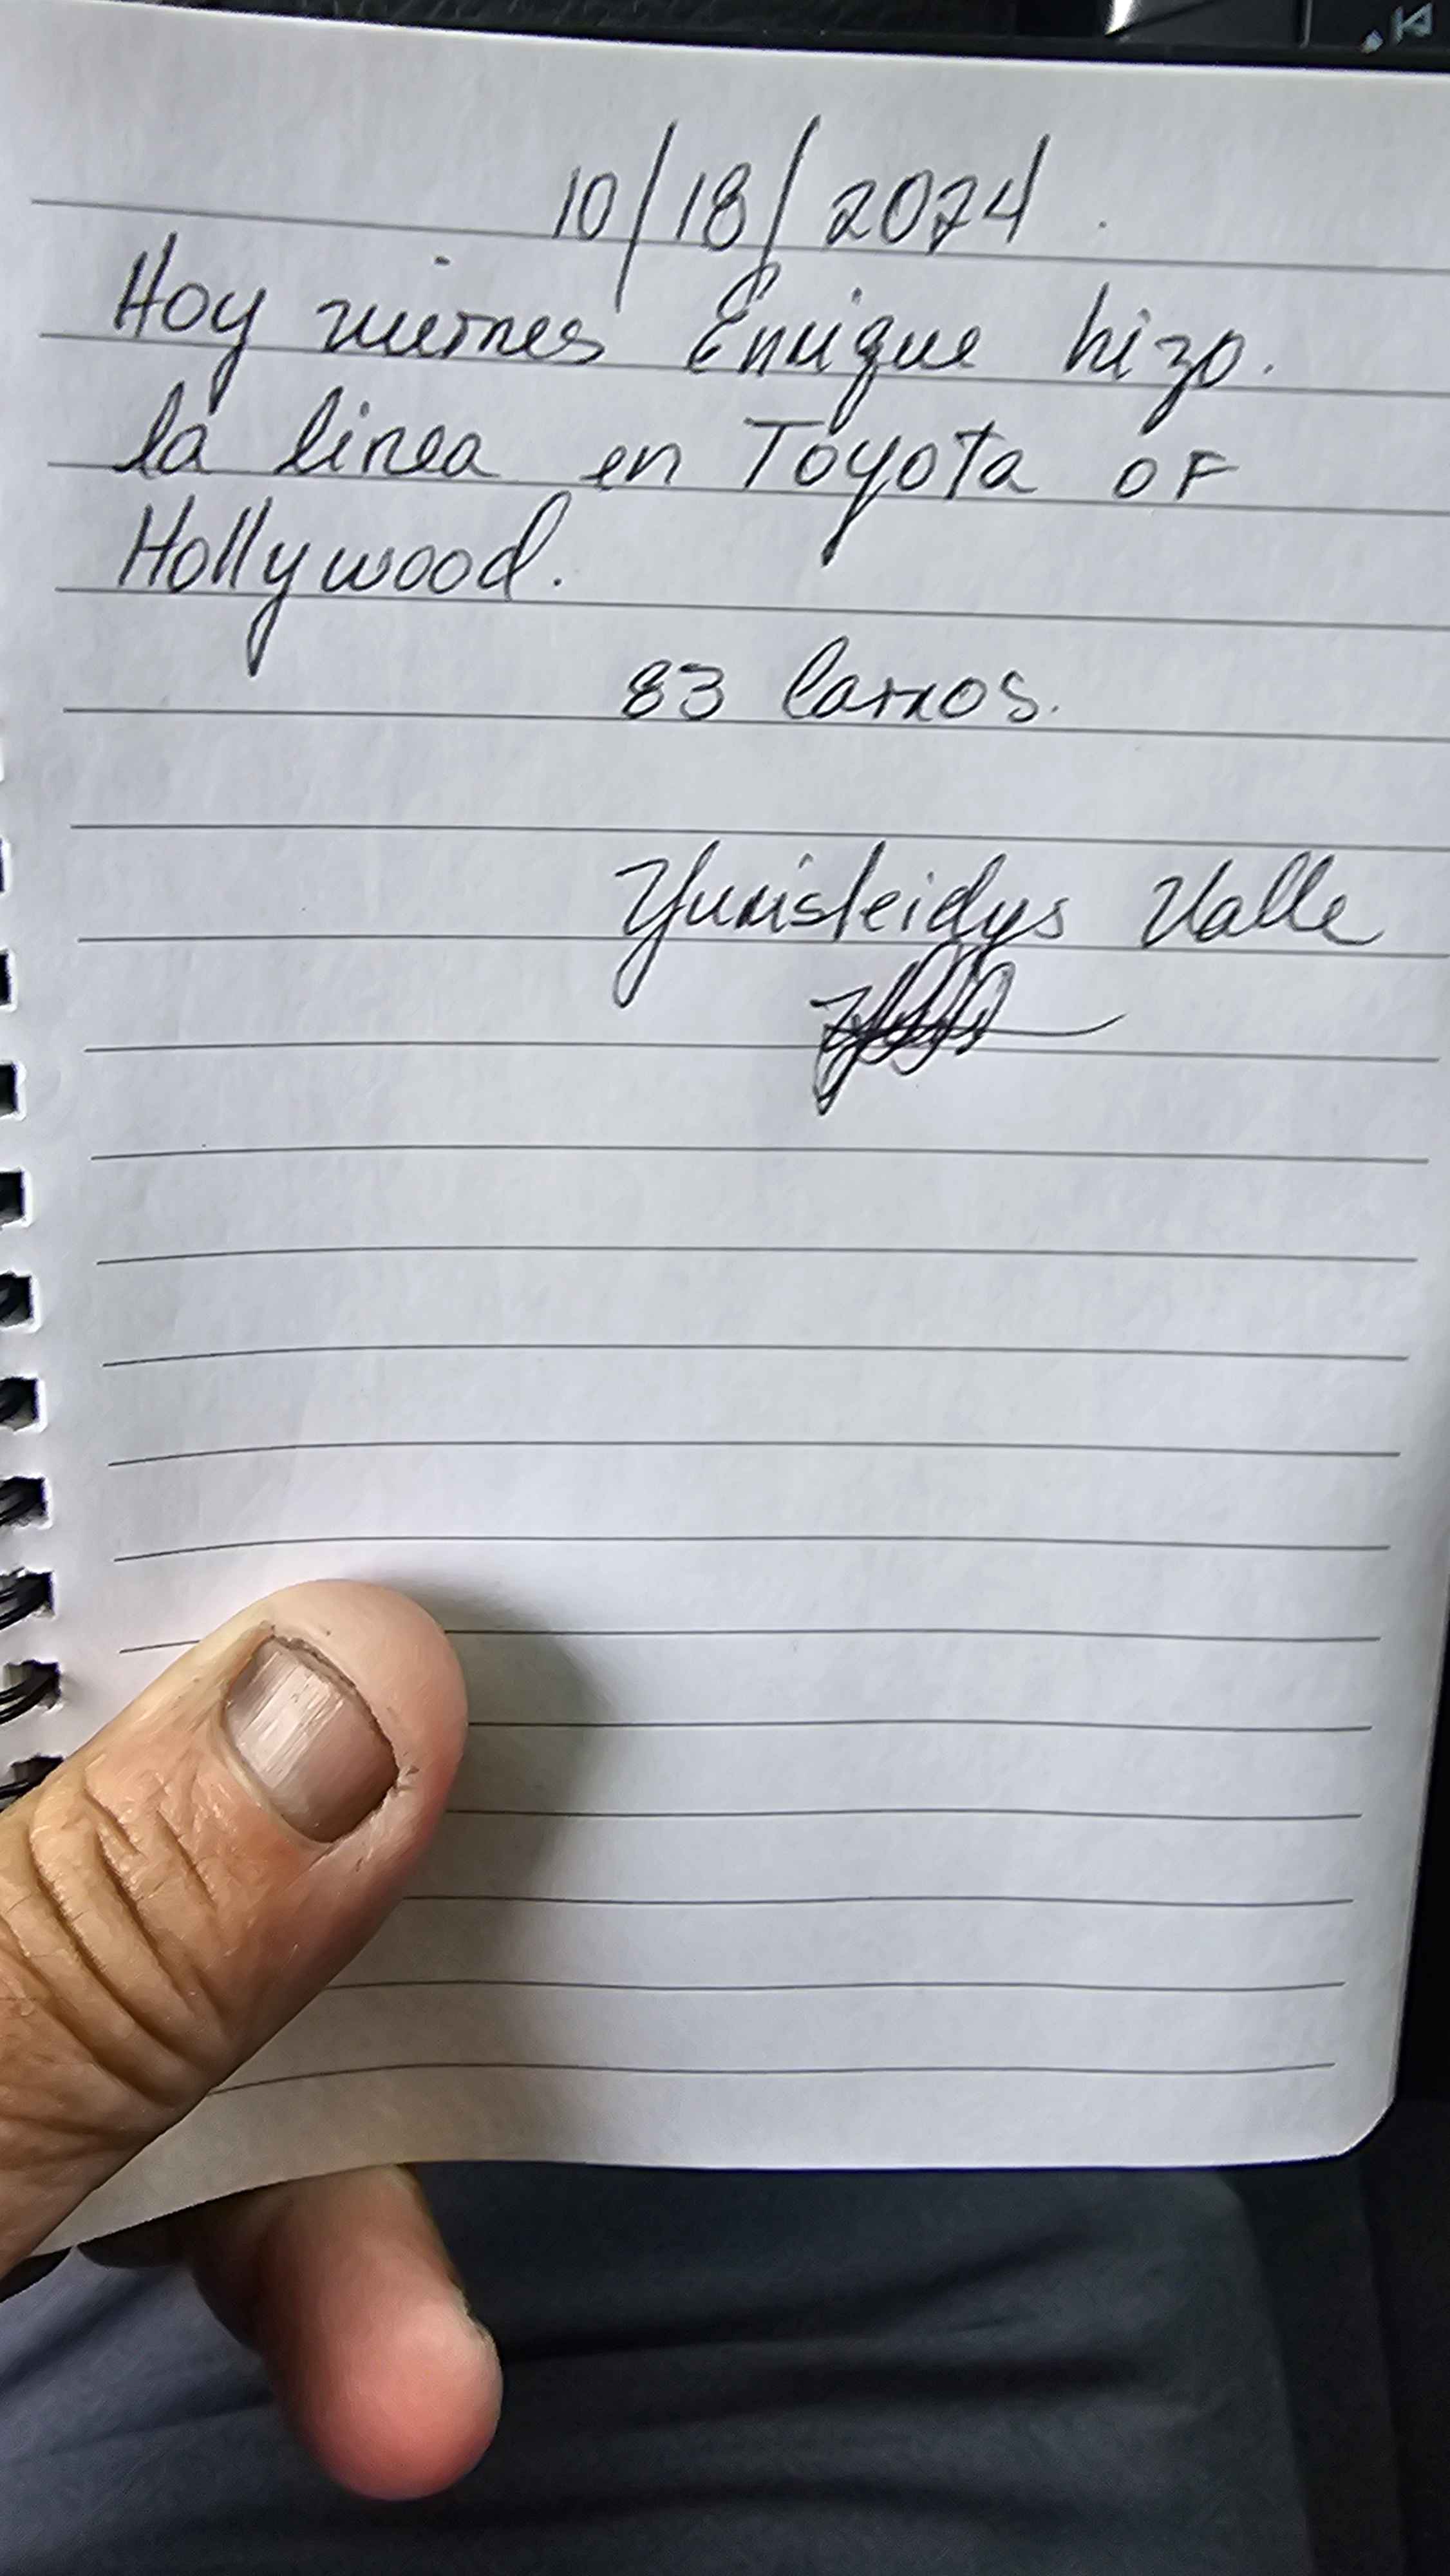 10/18/2024.
Hoy viernes Enrique hizo.
la linea en Toyota of
Hollywood.
83 Carros.
Yunisleidys Valle